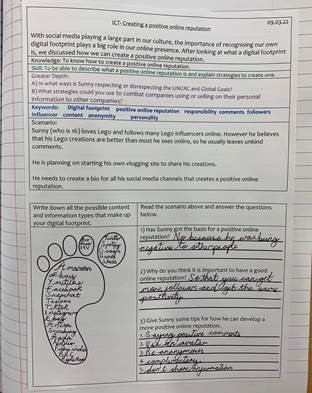 ICT- Creating a positive online reputation
09.03.22
With social media playing a large part in our culture, the importance of recognising our own
digital footprint plays a big role in our online presence. After looking at what a digital footprint
is, we discussed how we can create a positive online reputation.
Knowledge: To know how to create a positive online reputation.
Skill: To be able to describe what a positive online reputation is and explain strategies to create one.
Greater Depth:
A) In what ways is Sunny respecting or disrespecting the UNCRC and Global Goals?
B) What strategies could you use to combat companies using or selling on their personal
information to other companies?
Keywords: Digital footprint positive online reputation responsibility comments followers
influencer content anonymity personality
Scenario:
Sunny (who is 16) loves Lego and follows many Lego influencers online. However he believes
that his Lego creations are better than most he sees online, so he usually leaves unkind
comments.
He is planning on starting his own vlogging site to share his creations.
He needs to create a bio for all his social media channels that creates a positive online
reputation.
Write down all the possible
content and information types that make up
your digital footprint.
Amazon
Ebay
Youtube
Facebook
Snapchat
Tesco
Tiktok
Instagram
Argos
BBC
Read the scenario above and answer the questions
below.
1) Has Sunny got the basis for a positive online
reputation? No because he was being
negative to other people
2) Why do you think it is important to have a good
online reputation? So that you can get
more followers and get the same
positivity
3) Give Sunny some tips for how he can develop a
more positive online reputation.
1. Saying positive comments
2. Use an avatar
3. Be anonymous
4. complimentary
5. don't share information